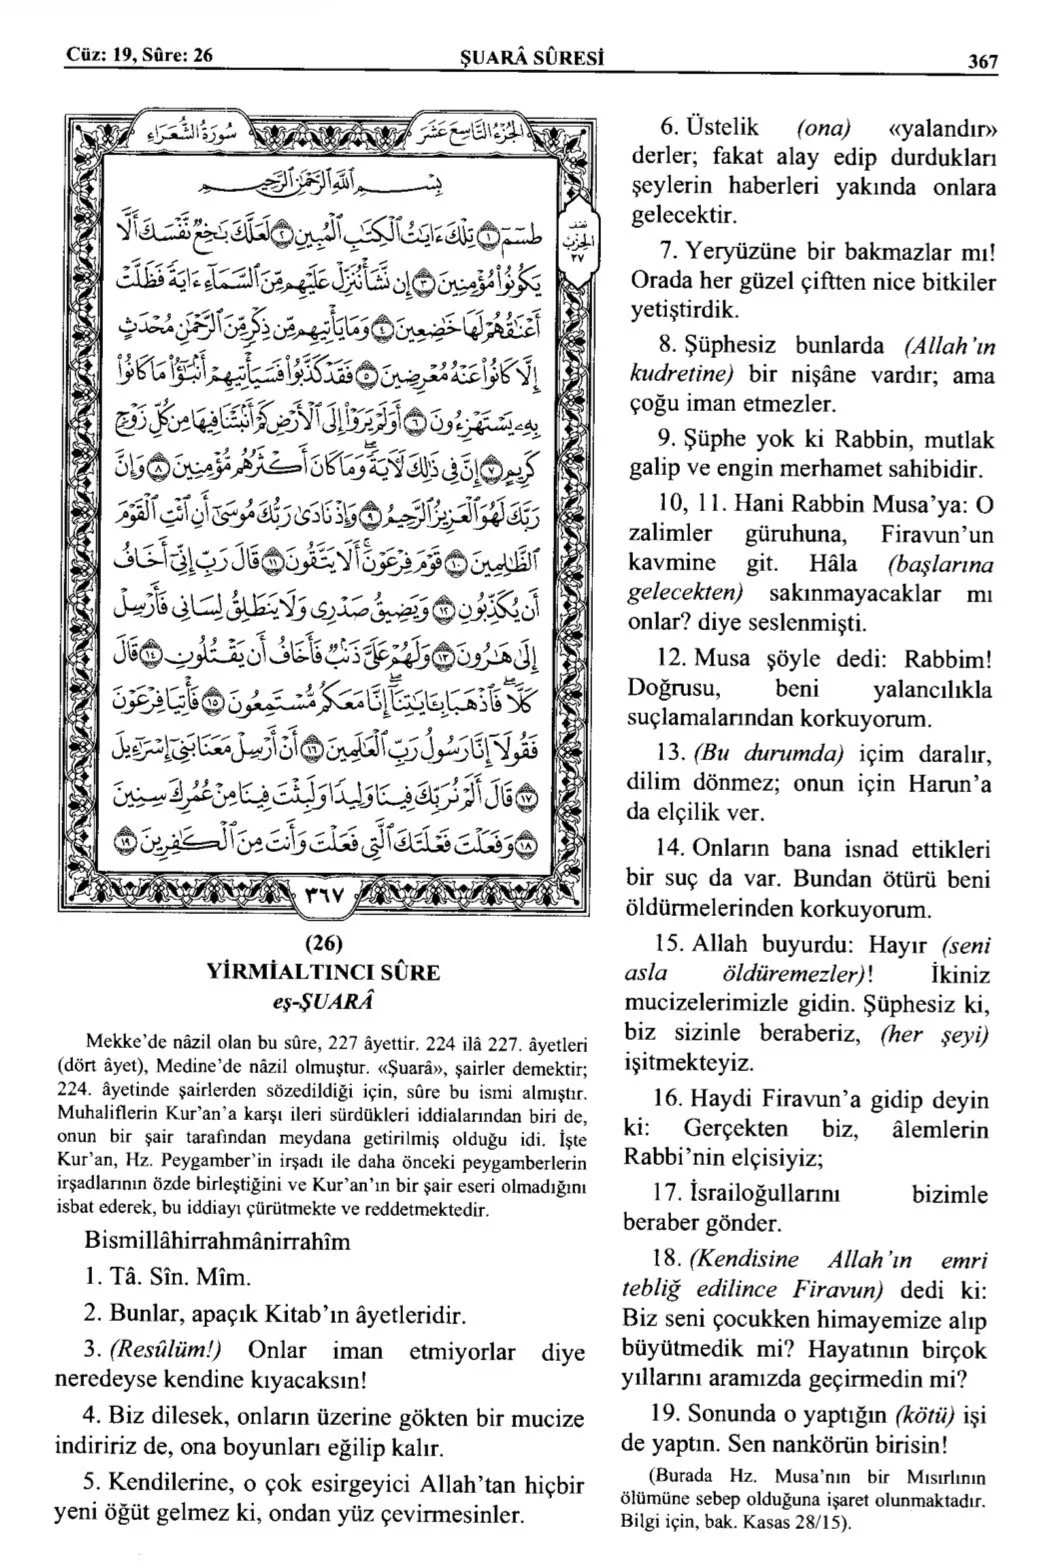 Cüz: 19, Sûre: 26
ŞUARÂ SÛRESİ
367
سُورَةُ الشُّعَرَاءِ
الجُزْءُ التَّاسِعَ عَشَرَ
بِسْمِ اللَّهِ الرَّحْمَٰنِ الرَّحِيمِ
طسٓمٓ ١ تِلْكَ ءَايَٰتُ ٱلْكِتَٰبِ ٱلْمُبِينِ ٢ لَعَلَّكَ بَٰخِعٌ نَّفْسَكَ أَلَّا
يَكُونُوا۟ مُؤْمِنِينَ ٣ إِن نَّشَأْ نُنَزِّلْ عَلَيْهِم مِّنَ ٱلسَّمَآءِ ءَايَةً فَظَلَّتْ
أَعْنَٰقُهُمْ لَهَا خَٰضِعِينَ ٤ وَمَا يَأْتِيهِم مِّن ذِكْرٍ مِّنَ ٱلرَّحْمَٰنِ مُحْدَثٍ
إِلَّا كَانُوا۟ عَنْهُ مُعْرِضِينَ ٥ فَقَدْ كَذَّبُوا۟ فَسَيَأْتِيهِمْ أَنۢبَٰٓؤُا۟ مَا كَانُوا۟
بِهِۦ يَسْتَهْزِءُونَ ٦ أَوَلَمْ يَرَوْا۟ إِلَى ٱلْأَرْضِ كَمْ أَنۢبَتْنَا فِيهَا مِن كُلِّ زَوْجٍ
كَرِيمٍ ٧ إِنَّ فِى ذَٰلِكَ لَءَايَةً وَمَا كَانَ أَكْثَرُهُم مُّؤْمِنِينَ ٨ وَإِنَّ
رَبَّكَ لَهُوَ ٱلْعَزِيزُ ٱلرَّحِيمُ ٩ وَإِذْ نَادَىٰ رَبُّكَ مُوسَىٰٓ أَنِ ٱئْتِ ٱلْقَوْمَ
ٱلظَّٰلِمِينَ ١٠ قَوْمَ فِرْعَوْنَ أَلَا يَتَّقُونَ ١١ قَالَ رَبِّ إِنِّىٓ أَخَافُ
أَن يُكَذِّبُونِ ١٢ وَيَضِيقُ صَدْرِى وَلَا يَنطَلِقُ لِسَانِى فَأَرْسِلْ
إِلَىٰ هَٰرُونَ ١٣ وَلَهُمْ عَلَىَّ ذَنۢبٌ فَأَخَافُ أَن يَقْتُلُونِ ١٤ قَالَ
كَلَّا فَٱذْهَبَا بِـَٔايَٰتِنَآ إِنَّا مَعَكُم مُّسْتَمِعُونَ ١٥ فَأْتِيَا فِرْعَوْنَ
فَقُولَآ إِنَّا رَسُولُ رَبِّ ٱلْعَٰلَمِينَ ١٦ أَنْ أَرْسِلْ مَعَنَا بَنِىٓ إِسْرَٰٓءِيلَ
١٧ قَالَ أَلَمْ نُرَبِّكَ فِينَا وَلِيدًا وَلَبِثْتَ فِينَا مِنْ عُمُرِكَ سِنِينَ
١٨ وَفَعَلْتَ فَعْلَتَكَ ٱلَّتِى فَعَلْتَ وَأَنتَ مِنَ ٱلْكَٰفِرِينَ ١٩
نصف
الحزب
٣٧
٣٦٧
(26)
YİRMİALTINCI SÛRE
eş-ŞUARÂ
Mekke’de nâzil olan bu sûre, 227 âyettir. 224 ilâ 227. âyetleri
(dört âyet), Medine’de nâzil olmuştur. «Şuarâ», şairler demektir;
224. âyetinde şairlerden sözedildiği için, sûre bu ismi almıştır.
Muhaliflerin Kur’an’a karşı ileri sürdükleri iddialarından biri de,
onun bir şair tarafından meydana getirilmiş olduğu idi. İşte
Kur’an, Hz. Peygamber’in irşadı ile daha önceki peygamberlerin
irşadlarının özde birleştiğini ve Kur’an’ın bir şair eseri olmadığını
isbat ederek, bu iddiayı çürütmekte ve reddetmektedir.
Bismillâhirrahmânirrahîm
1. Tâ. Sîn. Mîm.
2. Bunlar, apaçık Kitab’ın âyetleridir.
3. (Resûlüm!) Onlar iman etmiyorlar diye
neredeyse kendine kıyacaksın!
4. Biz dilesek, onların üzerine gökten bir mucize
indiririz de, ona boyunları eğilip kalır.
5. Kendilerine, o çok esirgeyici Allah’tan hiçbir
yeni öğüt gelmez ki, ondan yüz çevirmesinler.
6. Üstelik (ona) «yalandır»
derler; fakat alay edip durdukları
şeylerin haberleri yakında onlara
gelecektir.
7. Yeryüzüne bir bakmazlar mı!
Orada her güzel çiftten nice bitkiler
yetiştirdik.
8. Şüphesiz bunlarda (Allah’ın
kudretine) bir nişâne vardır; ama
çoğu iman etmezler.
9. Şüphe yok ki Rabbin, mutlak
galip ve engin merhamet sahibidir.
10, 11. Hani Rabbin Musa’ya: O
zalimler güruhuna, Firavun’un
kavmine git. Hâla (başlarına
gelecekten) sakınmayacaklar mı
onlar? diye seslenmişti.
12. Musa şöyle dedi: Rabbim!
Doğrusu, beni yalancılıkla
suçlamalarından korkuyorum.
13. (Bu durumda) içim daralır,
dilim dönmez; onun için Harun’a
da elçilik ver.
14. Onların bana isnad ettikleri
bir suç da var. Bundan ötürü beni
öldürmelerinden korkuyorum.
15. Allah buyurdu: Hayır (seni
asla öldüremezler)! İkiniz
mucizelerimizle gidin. Şüphesiz ki,
biz sizinle beraberiz, (her şeyi)
işitmekteyiz.
16. Haydi Firavun’a gidip deyin
ki: Gerçekten biz, âlemlerin
Rabbi’nin elçisiyiz;
17. İsrailoğullarını bizimle
beraber gönder.
18. (Kendisine Allah’ın emri
tebliğ edilince Firavun) dedi ki:
Biz seni çocukken himayemize alıp
büyütmedik mi? Hayatının birçok
yıllarını aramızda geçirmedin mi?
19. Sonunda o yaptığın (kötü) işi
de yaptın. Sen nankörün birisin!
(Burada Hz. Musa’nın bir Mısırlının
ölümüne sebep olduğuna işaret olunmaktadır.
Bilgi için, bak. Kasas 28/15).